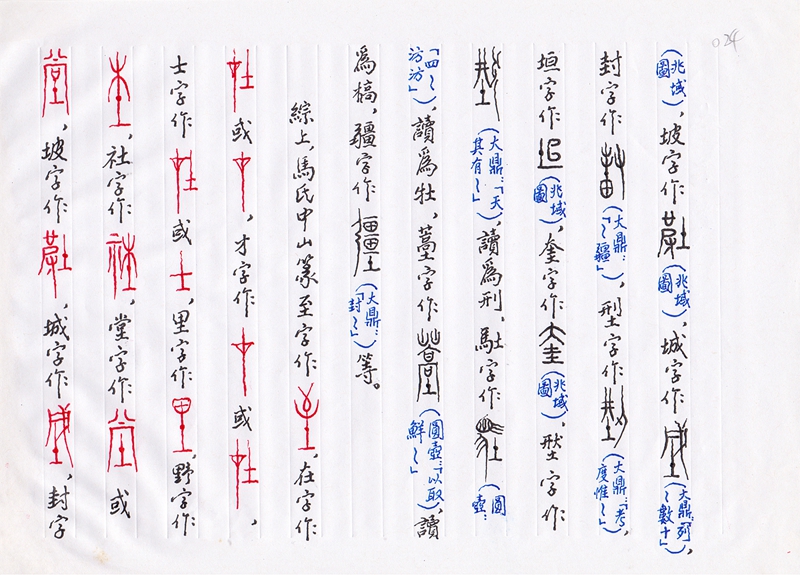 024
(兆域圖),坡字作(兆域圖),城字作(大鼎:「列~數十」),
封字作(大鼎:「~疆」),型字作(大鼎:「考度惟~」),
垣字作(兆域圖),奎字作(兆域圖),字作
(大鼎:「天其有~」),讀爲刑,字作(圓壺:
「四~汸汸」),讀爲牡,字作(圓壺:「以取鮮~」),讀
爲槁,疆字作(大鼎:「封~」)等。
綜上,馬氏中山篆至字作,在字作
或,才字作或,
士字作或,里字作,野字作
,社字作,堂字作或
,坡字作,城字作,封字